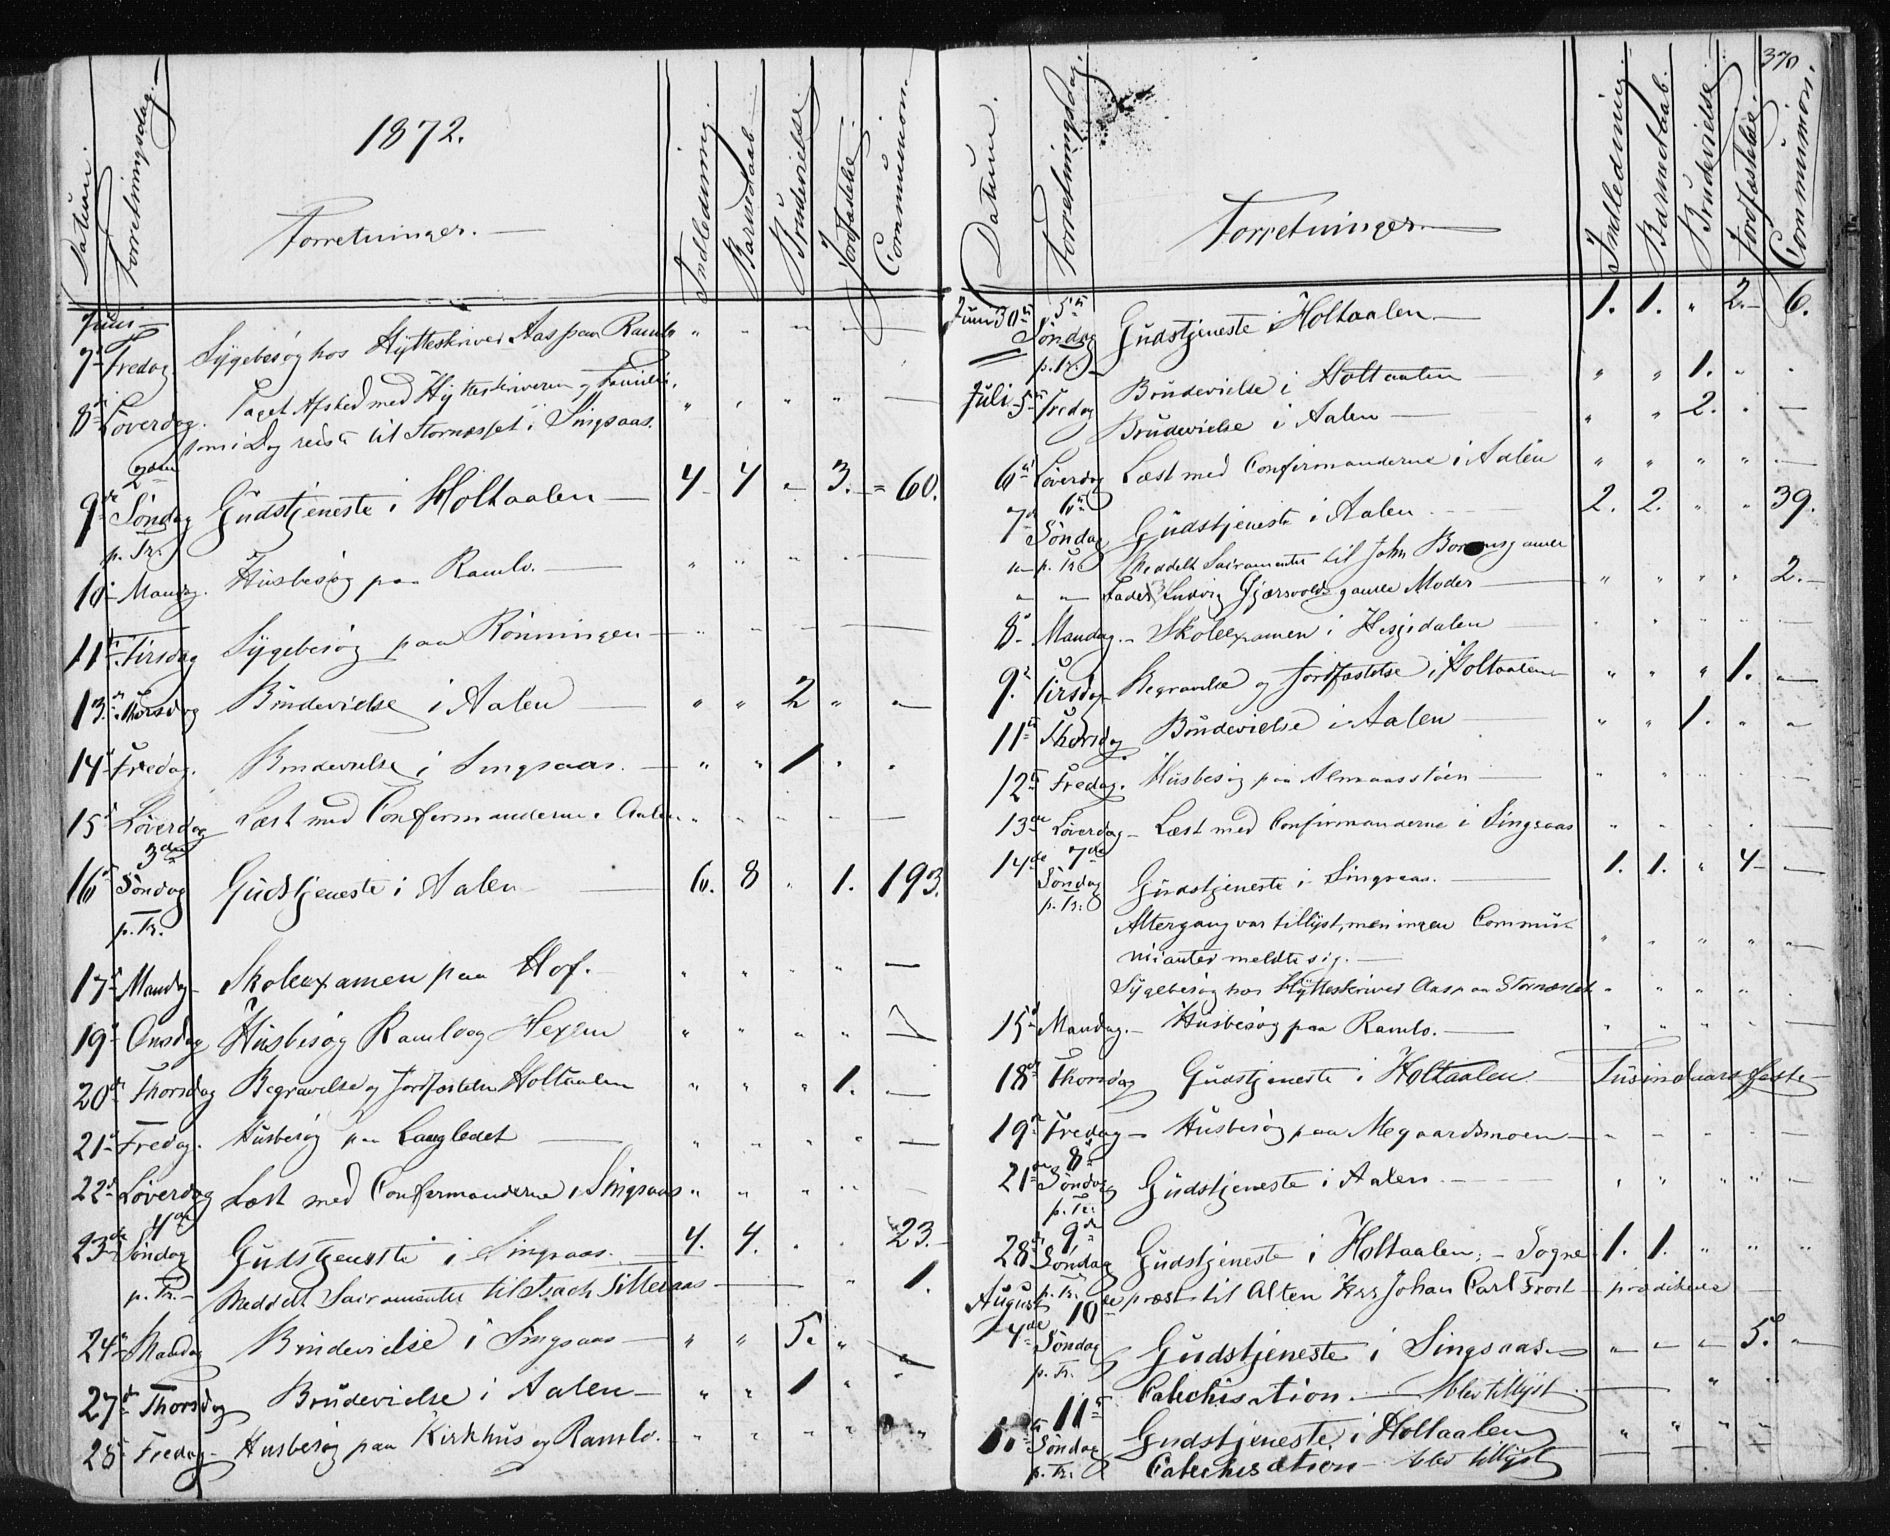 1872.
Datum. Forretningsdag. Forretninger. Indledning Barnedaab Brudevielse Jordfæstelse Communion.
Juni
7de Fredag Sygebesøg hos Hytteskriver Aas paa Ramlo " " " " —
8de Løverdag. Taget Afsked med Hytteskriveren og Familie, " " " " —
som i Dag reiste til Stornæsset i Singsaas.
2den
9de Søndag Gudstjeneste i Holtaalen — 4 4 " 3. 60.
p. Tr.
10. Mandag. Husbesøg paa Ramlo. — " " " " —
11te Tirsdag Sygebesøg paa Rønningen — " " " " —
13de Thorsdag Brudevielse i Aalen — " " 2 " "
14de Fredag. Brudevielse i Singsaas. — " " 1 " "
15de Løverdag Læst med Confirmanderne i Aalen " " " " —
3die
16de Søndag Gudstjeneste i Aalen — 6. 8 " 1. 193.
p. Tr.
17de Mandag Skoleexamen paa Hof. " " " " —
19de Onsdag Husbesøg Ramlo og Hexem " " " "
20de Thorsdag Begravelse og Jordfæstelse Holtaalen " " " 1. —
21de Fredag. Husbesøg paa Langledet — " " " " —
22de Løverdag Læst med Confirmanderne i Singsaas " " " " —
4de
23de Søndag Gudstjeneste i Singsaas. — 4. 4. " " 23.
p. Tr. Meddelt Sacramentet til — " 1.
24de Mandag Brudevielse i Singsaas — " " 5. " "
27de Thorsdag Brudevielse i Aalen — " " 1 " "
28de Fredag Husbesøg paa Kirkhus og Ramlo. " " " " "
370
Datum. Forretningsdag. Forretninger. Indledning. Barnedaab. Brudevielse. Jordfæstelse. Communion.
Juni 30te 5te Søndag Gudstjeneste i Holtaalen — 1. 1. " 2. 6.
p. Tr.
Brudevielse i Holtaalen — " " 1. " .
Juli 5te Fredag Brudevielse i Aalen — " " 2. " —
6te Løverdag Læst med Confirmanderne i Aalen " " " " —
7de 6te Søndag Gudstjeneste i Aalen. — 2. 2. " " 39.
" p. Tr. Meddelt Sacramentet til John gamle
" " Fader & Ludvig Gjærsvolds gamle Moder — " " " " 2.
8de Mandag. Skoleexamen i Hesjedalen — " " " " —
9de Tirsdag Begravelse og Jordfæstelse i Holtaalen " " " 1. —
11te Thorsdag Brudevielse i Aalen — " " 1. " "
12te Fredag. Husbesøg paa Almaasstøen — " " " " —
13de Løverdag Læst med Confirmanderne i Singsaas " " " " —
14de 7de Søndag Gudstjeneste i Singsaas. — 1. 1. " 4 —
p. Tr.
Altergang var tillyst, men ingen Commu-
nicanter meldte sig. — " " " " —
Sygebesøg hos Hytteskriver Aas paa Stornæsset " " " " .
15de Mandag. — Husbesøg paa Ramlo. — " " " " —
18de Thorsdag Gudstjeneste i Holtaalen Tusindaarsfeste
19de Fredag — Husbesøg paa Megaardsmoen — " " " " —
21de 8de Søndag Gudstjeneste i Aalen — " " " " "
p. Tr.
28de 9de Søndag Gudstjeneste i Holtaalen. — Sogne- 1. 1. " " "
p. Tr. præst til Alten Hrr Johan Carl Frost — prædikede
August 10de
4de Søndag Gudstjeneste i Singsaas. — " " " 5. "
p. Tr. Catechisation. — blev tillyst. — " "
11te
Søndag Gudstjeneste i Holtaalen " " " "
p. Tr. Catechisation — blev tillyst —